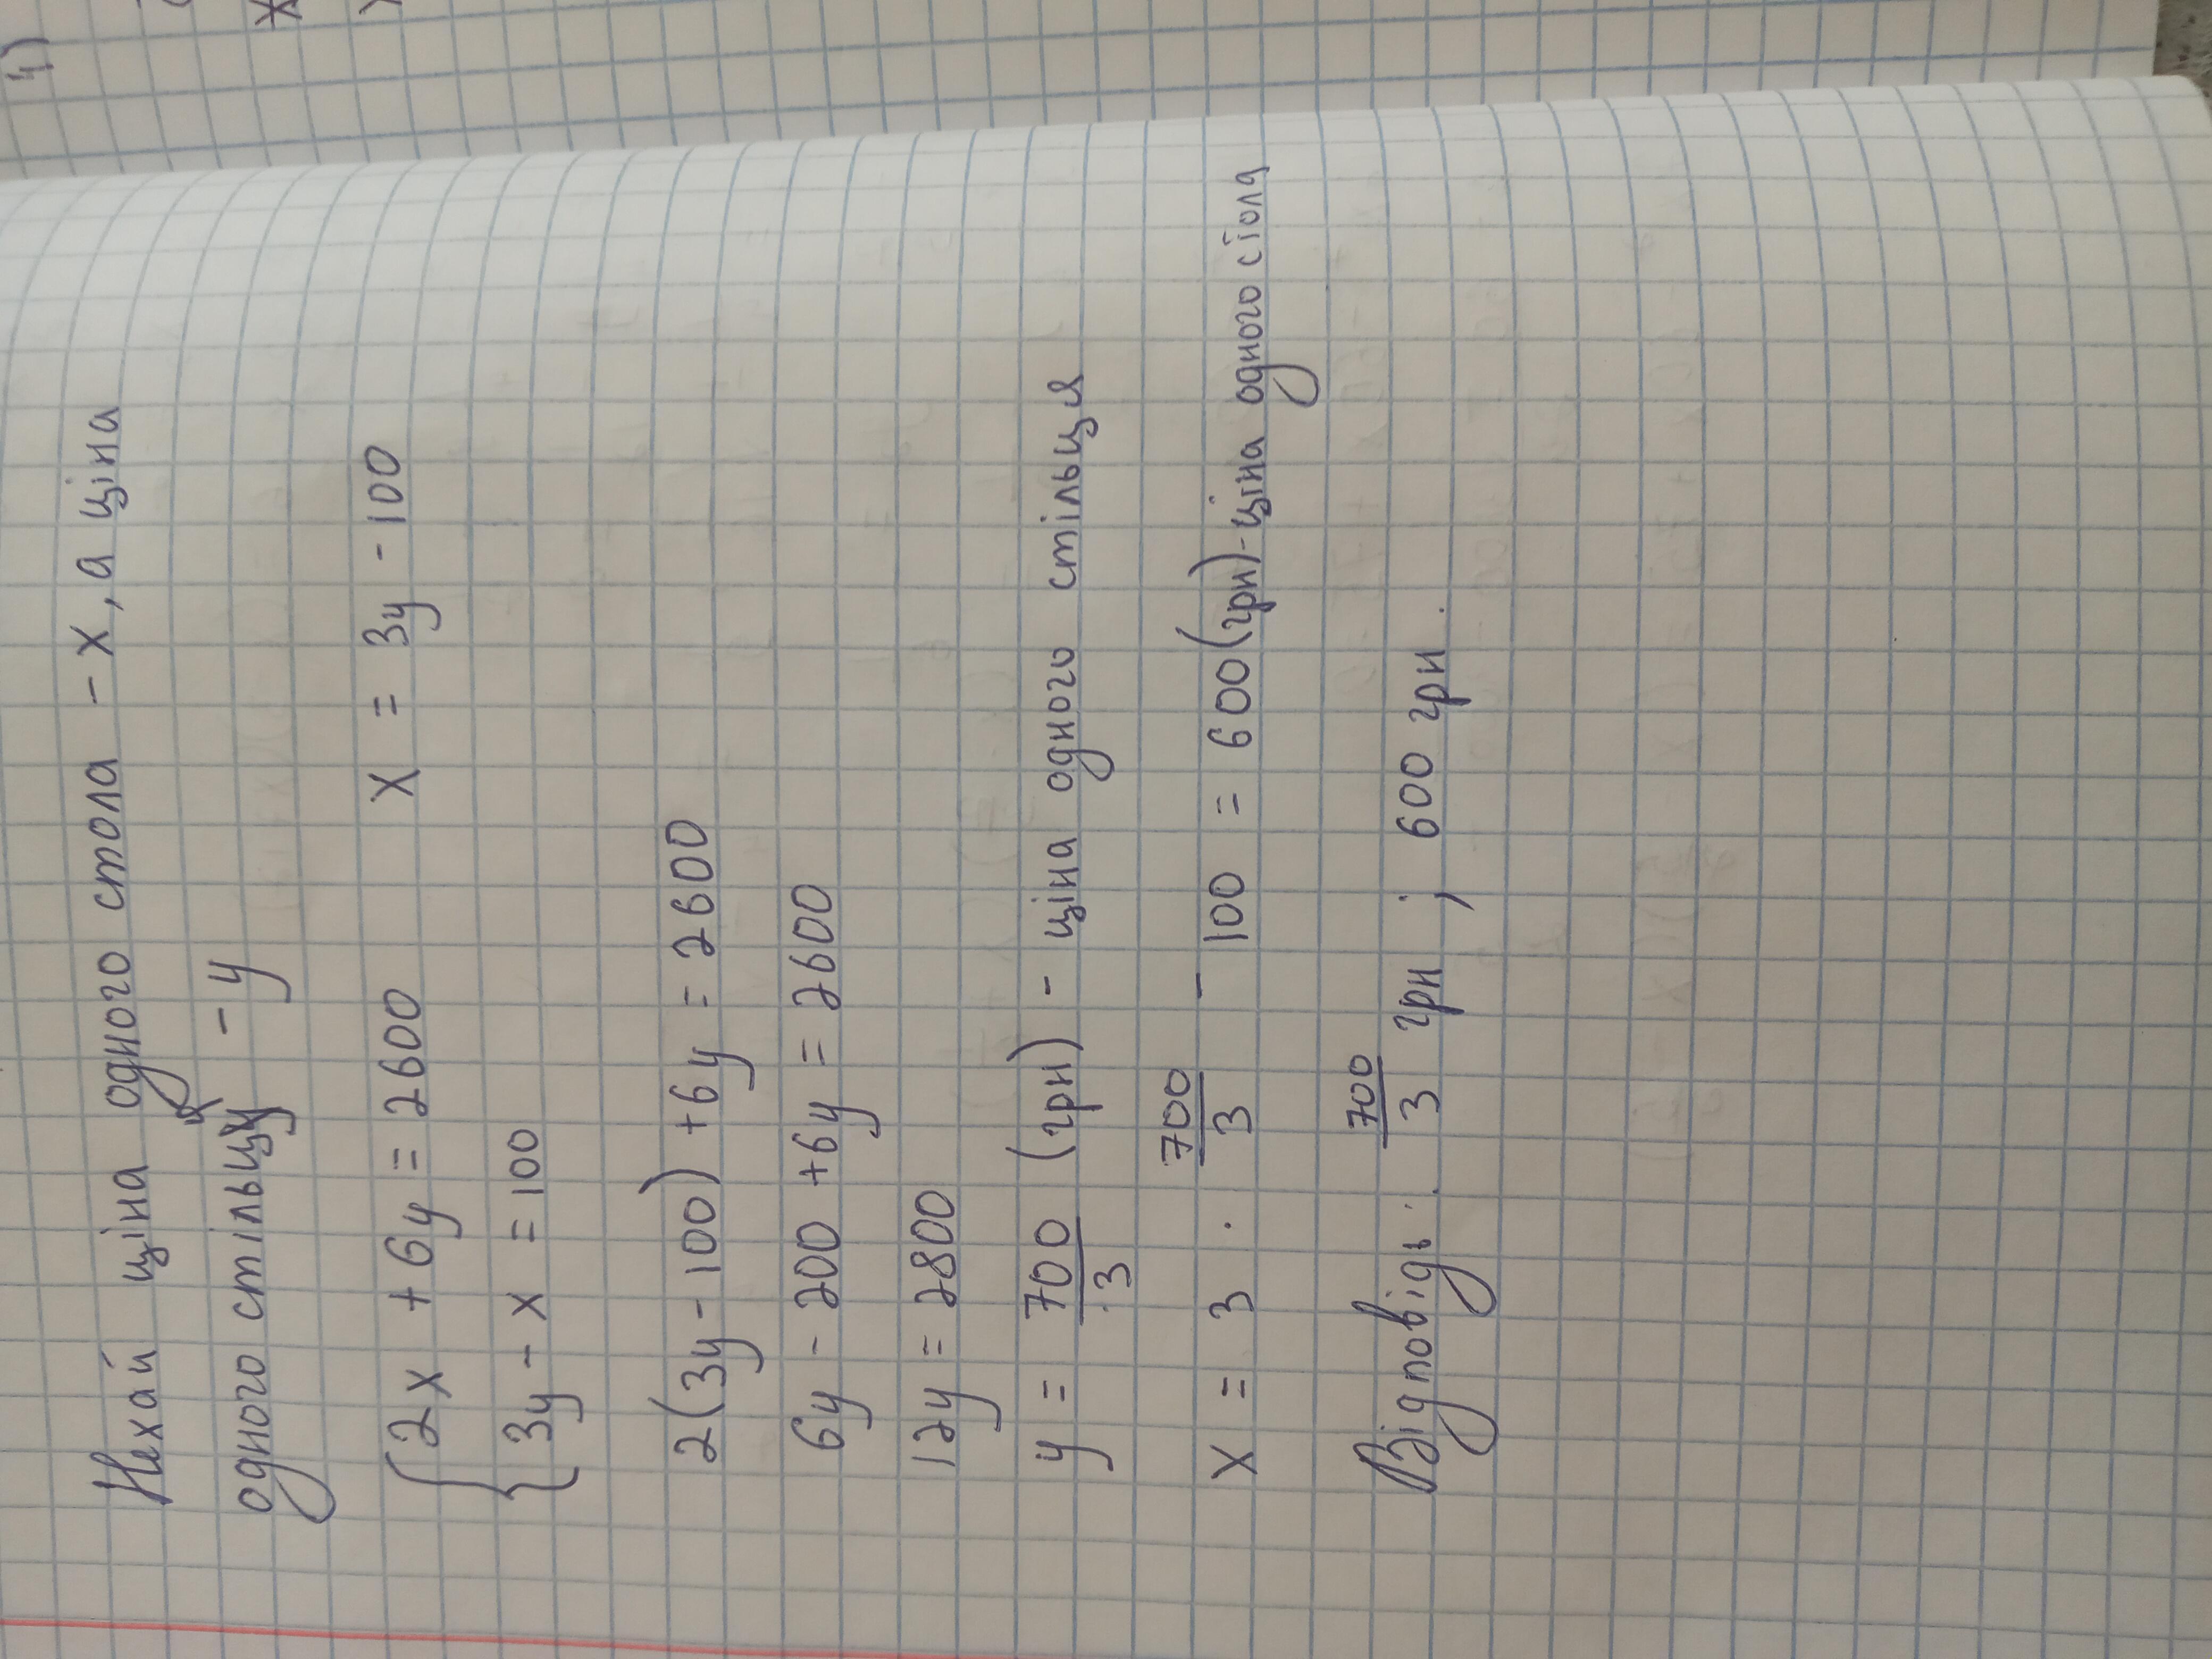 4)
Нехай ціна одного стола - x, а ціна
одного стільця - y
{ 2x + 6y = 2600 x = 3y - 100
{ 3y - x = 100
2(3y - 100) + 6y = 2600
6y - 200 + 6y = 2600
12y = 2800
y = 700/3 (грн) - ціна одного стільця
x = 3 · 700/3 - 100 = 600 (грн) - ціна одного стола
Відповідь: 700/3 грн ; 600 грн.